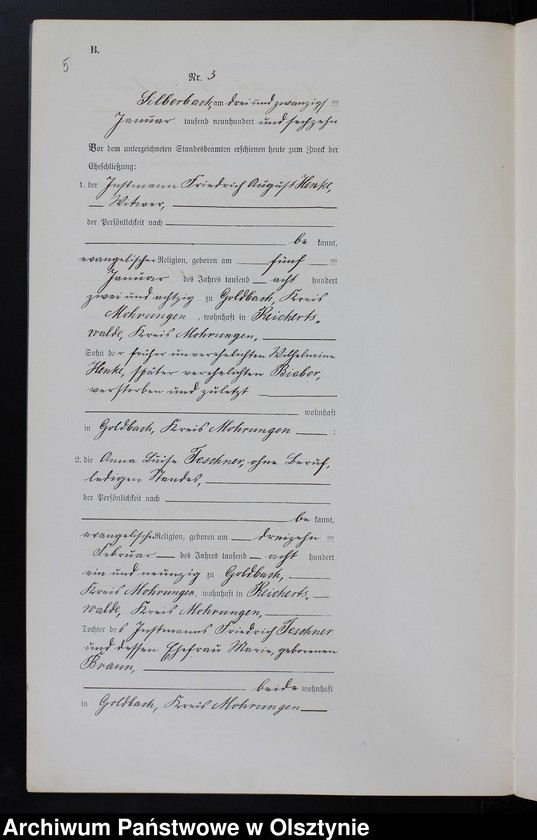 B.
5
Nr. 3
Silberbach, am drei und zwanzig ten
Januar tausend neunhundert und sechzehn
Vor dem unterzeichneten Standesbeamten erschienen heute zum Zweck der
Eheschließung:
1. der Instmann Friedrich August Henke,
Witwer,
der Persönlichkeit nach
be kannt,
evangelischer Religion, geboren am fünf ten
Januar des Jahres tausend acht hundert
zwei und achtzig zu Goldbach, Kreis
Mohrungen, wohnhaft in Reicherts-
walde, Kreis Mohrungen,
Sohn der früher unverehelichten Wilhelmine
Henke, später verehelichten Bieber,
verstorben und zuletzt
wohnhaft
in Goldbach, Kreis Mohrungen ;
2. die Anna Luise Teschner, ohne Beruf,
ledigen Standes,
der Persönlichkeit nach
be kannt,
evangelischer Religion, geboren am dreizehn ten
Februar des Jahres tausend acht hundert
ein und neunzig zu Goldbach,
Kreis Mohrungen, wohnhaft in Reicherts-
walde, Kreis Mohrungen,
Tochter des Instmanns Friedrich Teschner
und dessen Ehefrau Marie, geborenen
Braun,
beide wohnhaft
in Goldbach, Kreis Mohrungen
Archiwum Państwowe w Olsztynie